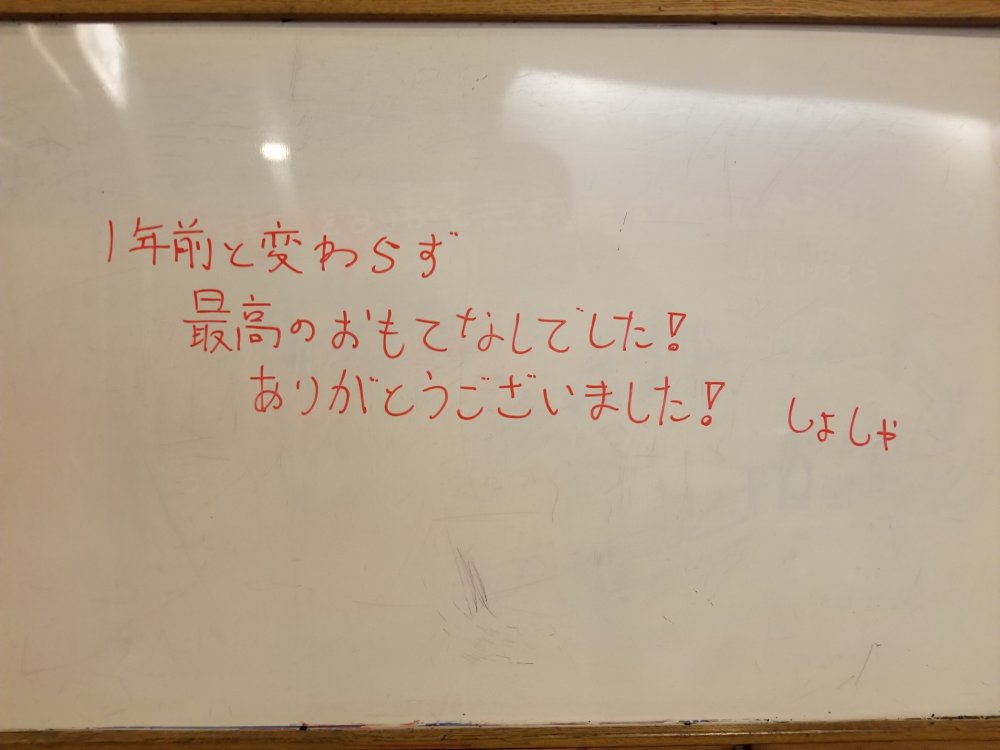 1年前と変わらず
最高のおもてなしでした!
ありがとうございました! しょしゃ